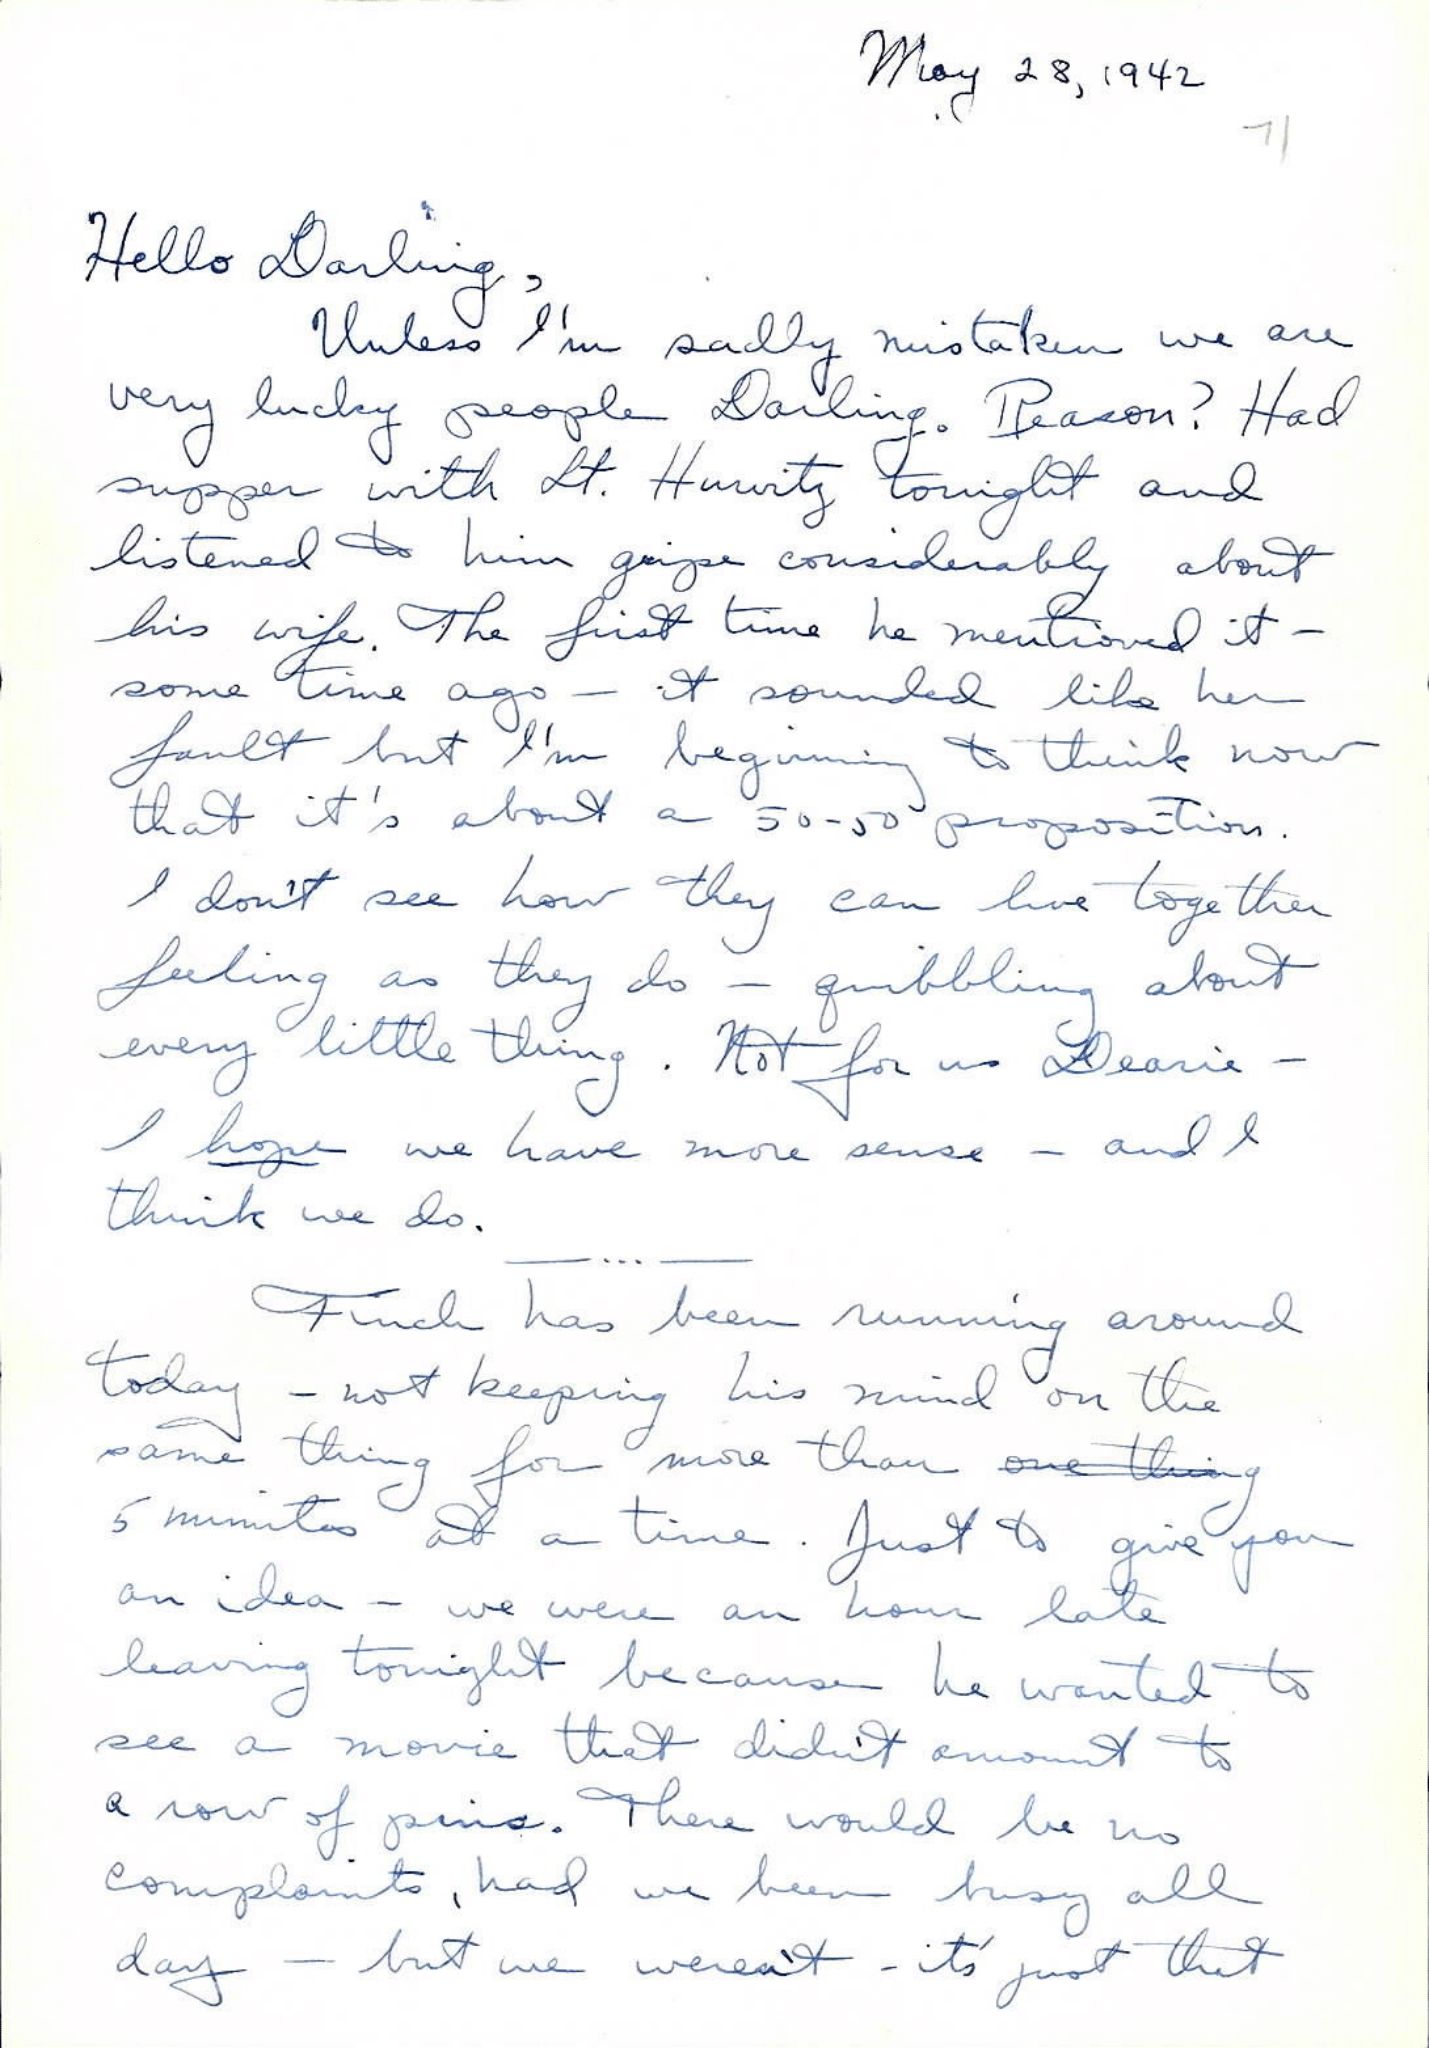 May 28, 1942
71
Hello Darling,
Unless I'm sadly mistaken we are
very lucky people Darling. Reason? Had
supper with Lt. Hurwitz tonight and
listened to him gripe considerably about
his wife. The first time he mentioned it -
some time ago - it sounded like her
fault but I'm beginning to think now
that it's about a 50-50 proposition.
I don't see how they can live together
feeling as they do - quibbling about
every little thing. Not for us Dearie -
I hope we have more sense - and I
think we do.
— ... —
Finch has been running around
today - not keeping his mind on the
same thing for more than one thing
5 minutes at a time. Just to give you
an idea - we were an hour late
leaving tonight because he wanted to
see a movie that didn't amount to
a row of pins. There would be no
complaints, had we been busy all
day - but we weren't - it's just that